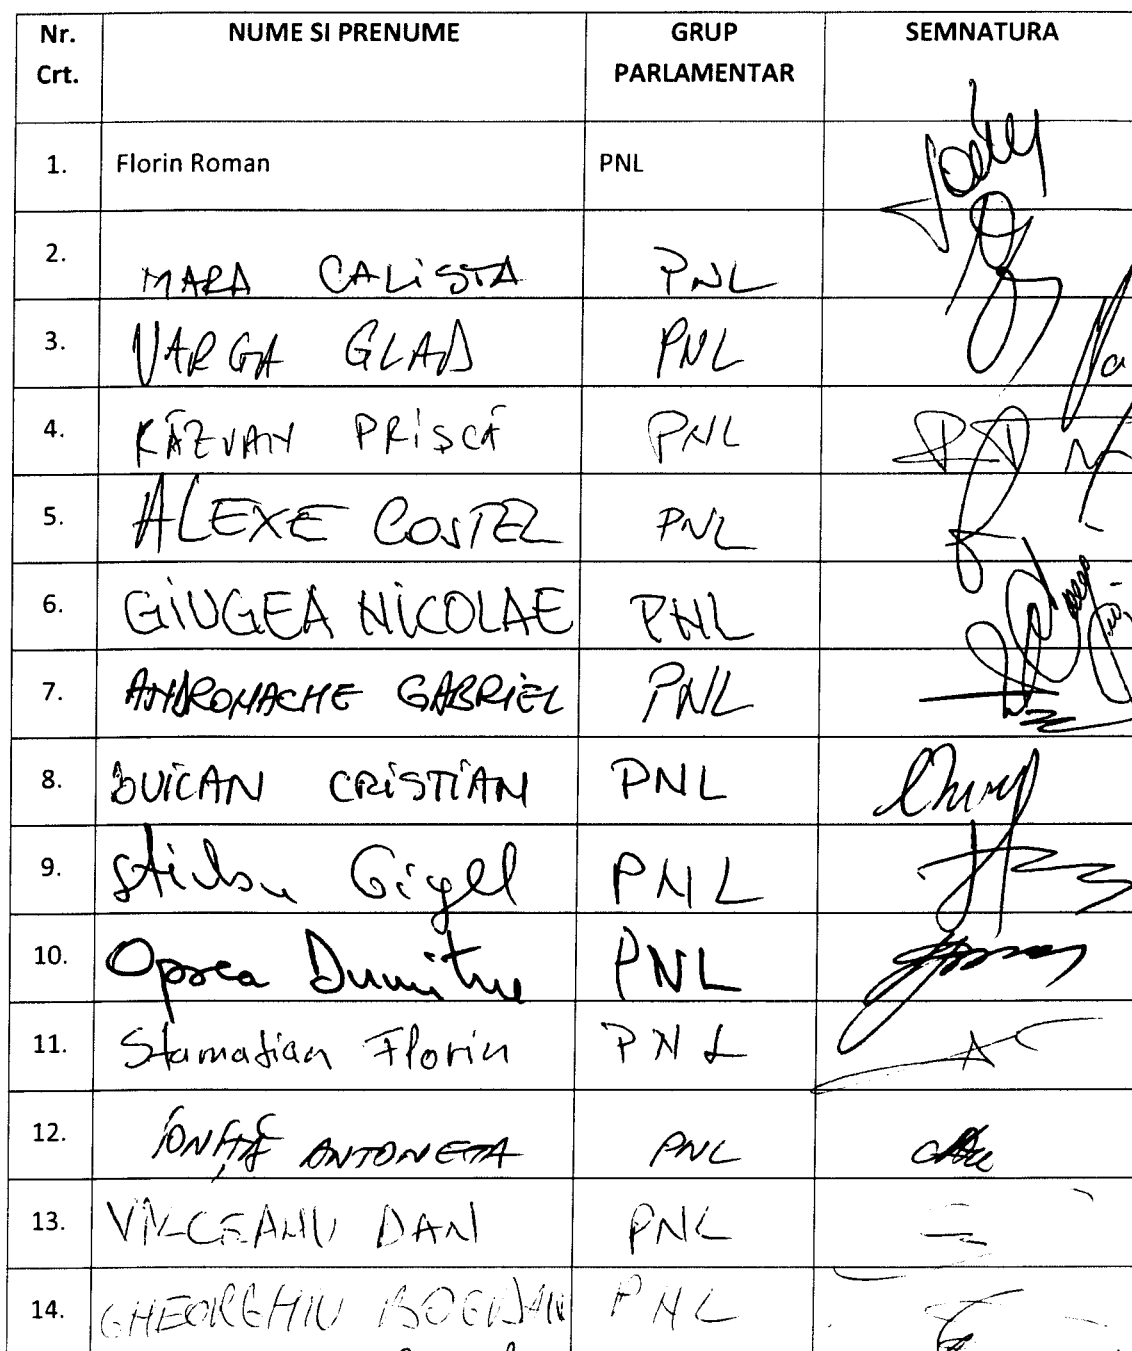 Nr. Crt. NUME SI PRENUME GRUP PARLAMENTAR SEMNATURA
1. Florin Roman PNL
2. MARA CALISTA PNL
3. VARGA GLAD PNL
4. RĂZVAN PRIȘCĂ PNL
5. ALEXE COSTEL PNL
6. GIUGEA NICOLAE PNL
7. ANDRONACHE GABRIEL PNL
8. BUICAN CRISTIAN PNL
9. Știrbu Gigel PNL
10. Oprea Dumitru PNL
11. Stamatian Florin PNL
12. IONIȚĂ ANTONETA PNL
13. VÎLCEANU DAN PNL
14. GHEORGHIU BOGDAN PNL